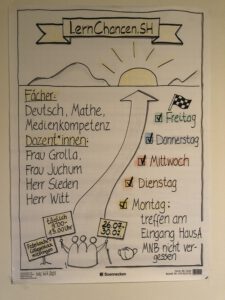 LernChancen.SH
Fächer:
Deutsch, Mathe,
Medienkompetenz
Dozent*innen:
Frau Grolla,
Frau Juchum
Herr Sieden
Herr Witt
Freitag
Donnerstag
Mittwoch
Dienstag
Montag:
treffen am
Eingang HausA
MNB nicht ver-
gessen
täglich
9.00-
13.00 Uhr
26.07.-
30.07.
Soennecken